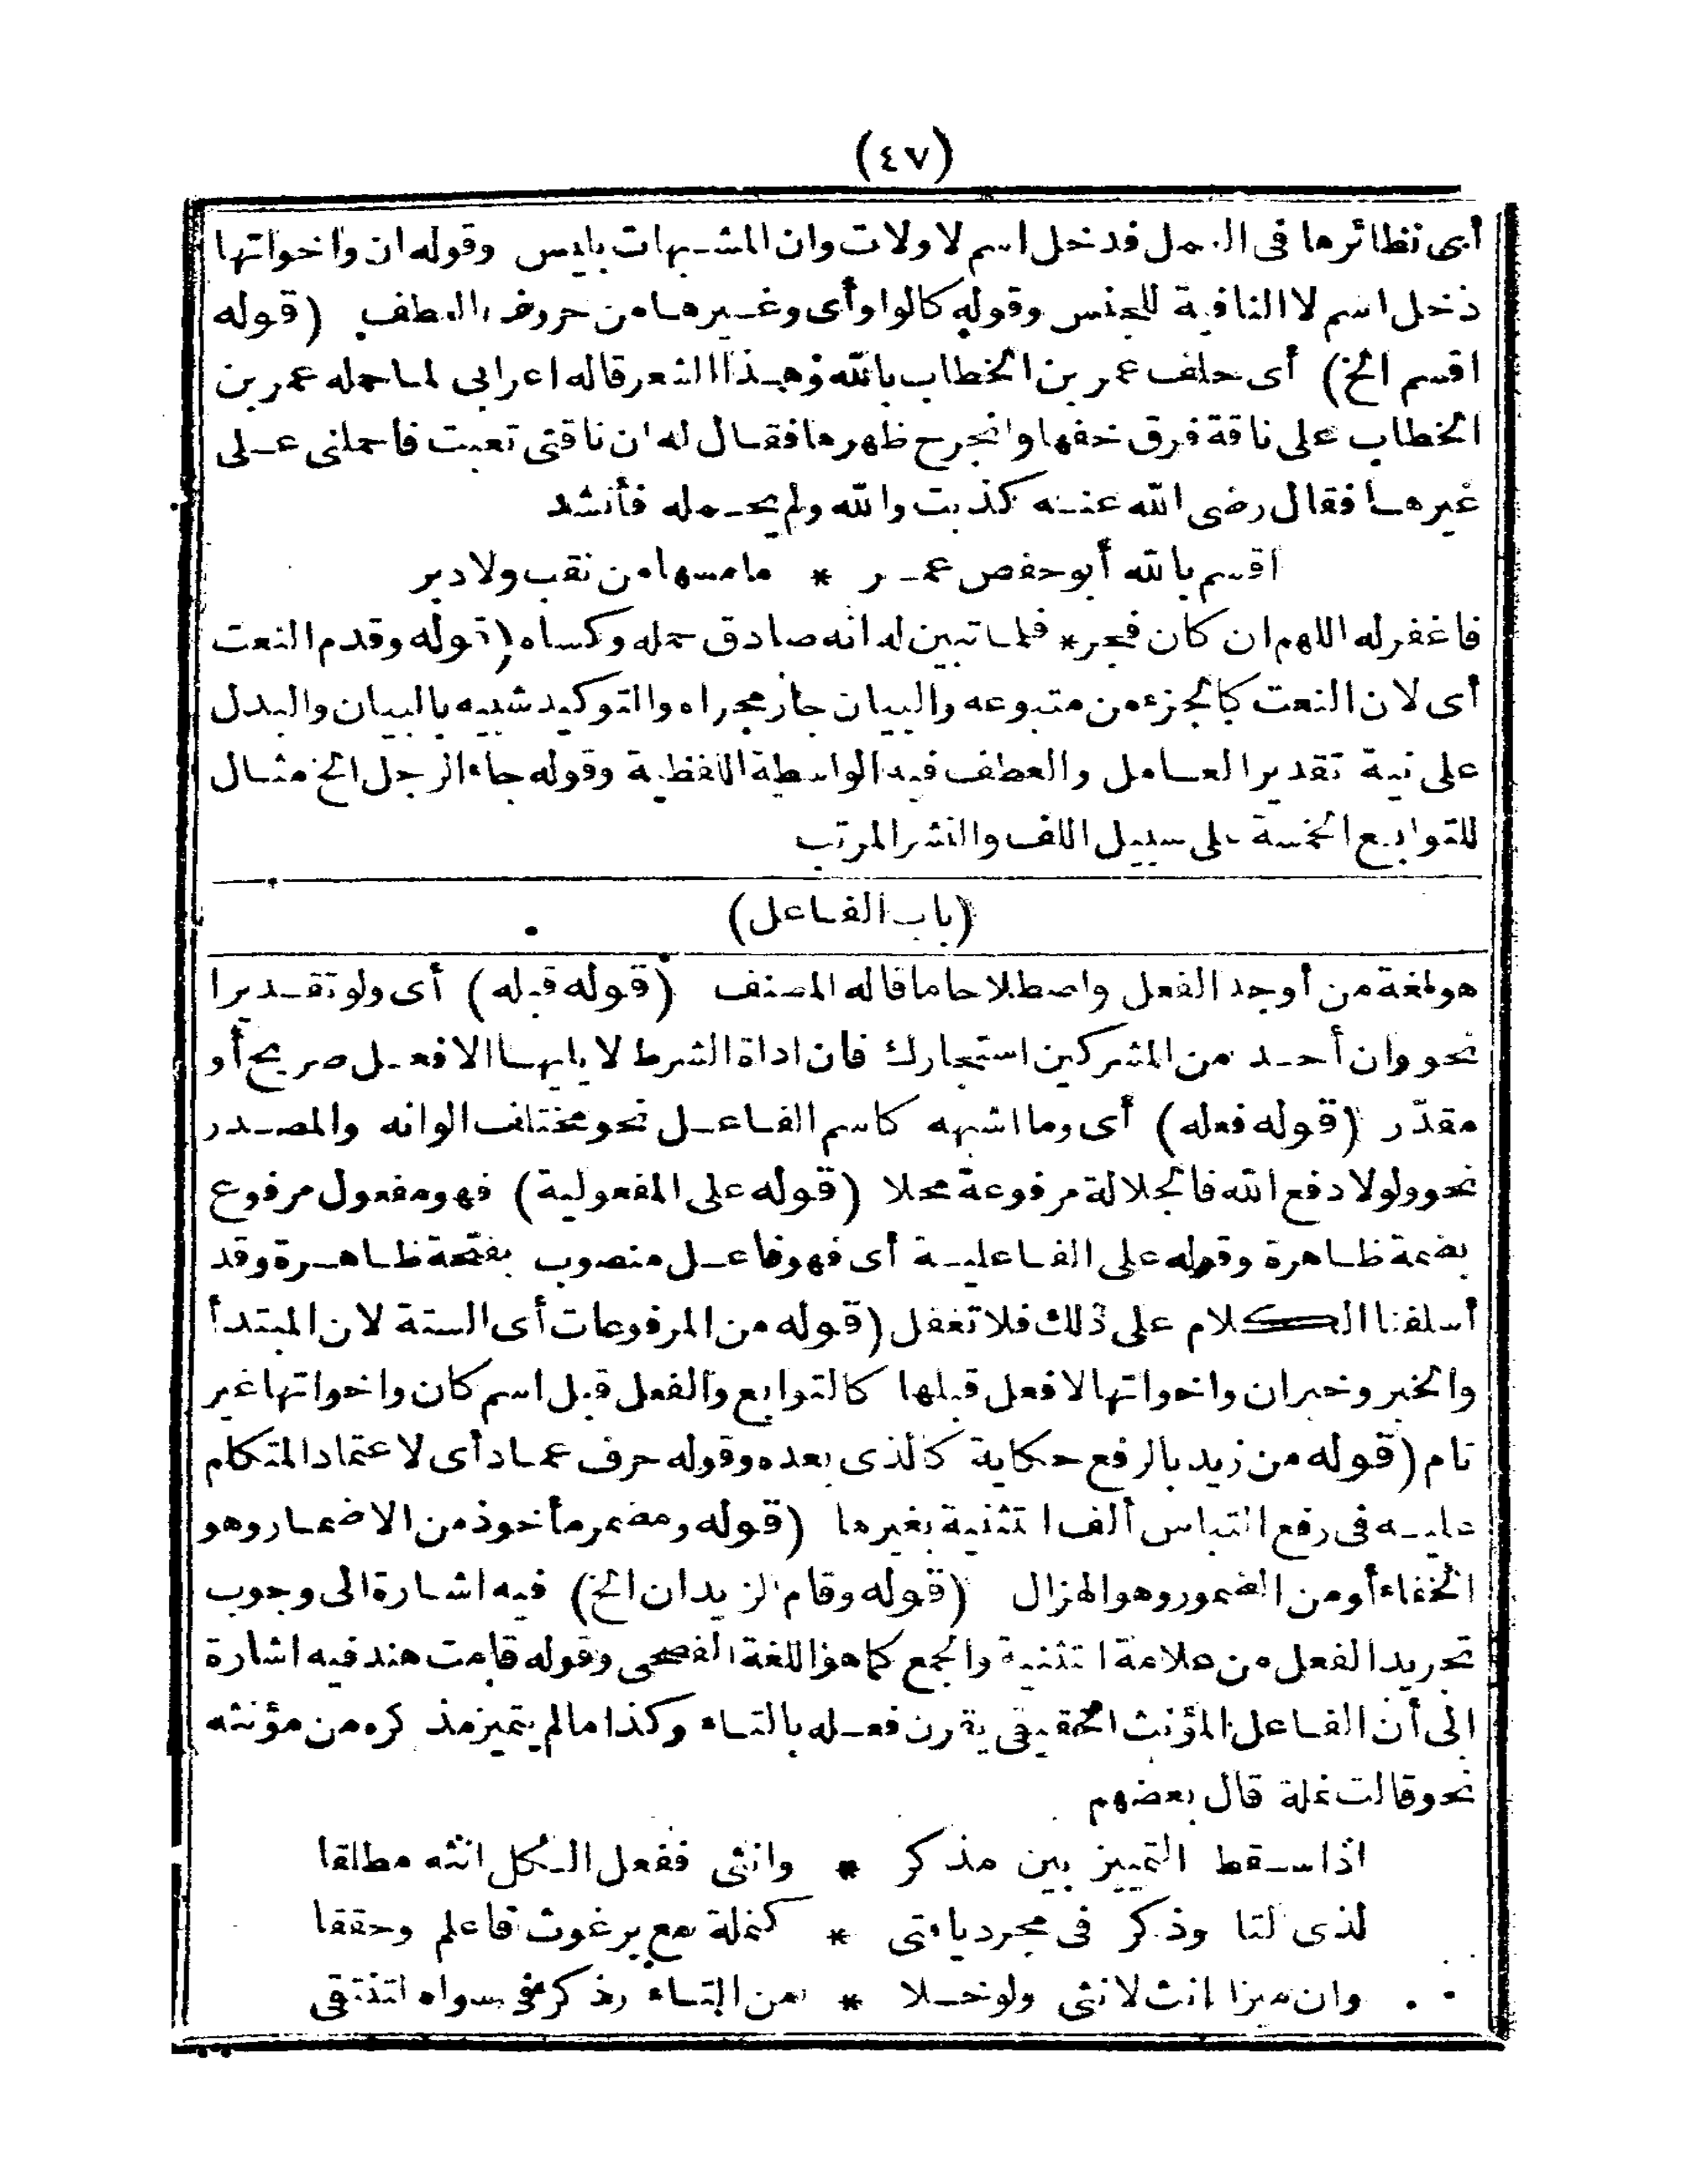 (٤٧)
أى نظائرها فى العمل فدخل اسم لا ولات وان المشبهات بليس وقوله ان واخواتها
دخل اسم لا النافية للجنس وقوله كالواو أى وغيرها من حروف العطف (قوله
اقسم الخ) أى حلف عمر بن الخطاب بالله وهذا الشعر قاله اعرابى لما حمله عمر بن
الخطاب على ناقة فرق خفها وانجرح ظهرها فقال له ان ناقتى تعبت فاحملنى على
غيرها فقال رضى الله عنه كذبت والله ولم يحمله فأنشد
اقسم بالله أبو حفص عمر * ما مسها من نقب ولا دبر
فاغفر له اللهم ان كان فجر * فلما تبين له انه صادق حمله وكساه (قوله وقدم النعت
أى لان النعت كالجزء من متبوعه والبيان جار مجراه والتوكيد شبيه بالبيان والبدل
على نية تقدير العامل والعطف فيه الواسطة اللفظية وقوله جاء الرجل الخ مثال
للتوابع الخمسة على سبيل اللف والنشر المرتب
(باب الفاعل)
هو لغة من أوجد الفعل واصطلاحا ما قاله المصنف (قوله قبله) أى ولو تقديرا
نحو وان أحد من المشركين استجارك فان اداة الشرط لا يليها الا فعل صريح أو
مقدّر (قوله فعله) أى وما اشبهه كاسم الفاعل نحو مختلف الوانه والمصدر
نحو ولولا دفع الله فالجلالة مرفوعة محلا (قوله على المفعولية) فهو مفعول مرفوع
بضمة ظاهرة وقوله على الفاعلية أى فهو فاعل منصوب بفتحة ظاهرة وقد
أسلفنا الكلام على ذلك فلا تغفل (قوله من المرفوعات أى الستة لان المبتدأ
والخبر وخبر ان واخواتها لا فعل قبلها كالتوابع والفعل قبل اسم كان واخواتها غير
تام (قوله من زيد بالرفع حكاية كالذى بعده وقوله حرف عماد أى لاعتماد المتكلم
عليه فى رفع التباس ألف التثنية بغيرها (قوله ومضمر مأخوذ من الاضمار وهو
الخفاء أو من الضمور وهو الهزال (قوله وقام الزيدان الخ) فيه اشارة الى وجوب
تجريد الفعل من علامة التثنية والجمع كما هو اللغة الفصحى وقوله قامت هند فيه اشارة
الى أن الفاعل المؤنث الحقيقى يقرن فعله بالتاء وكذا ما لم يتميز مذكره من مؤنثه
نحو قالت نملة قال بعضهم
اذا سقط التمييز بين مذكر * وانثى ففعل الكل انثه مطلقا
لذى لتا وذكر فى مجرد ياءتى * كنملة مع برغوث فاعلم وحققا
وان ميزا انث لانثى ولو خلا * من التاء وذكر فى سواه لتذتقى